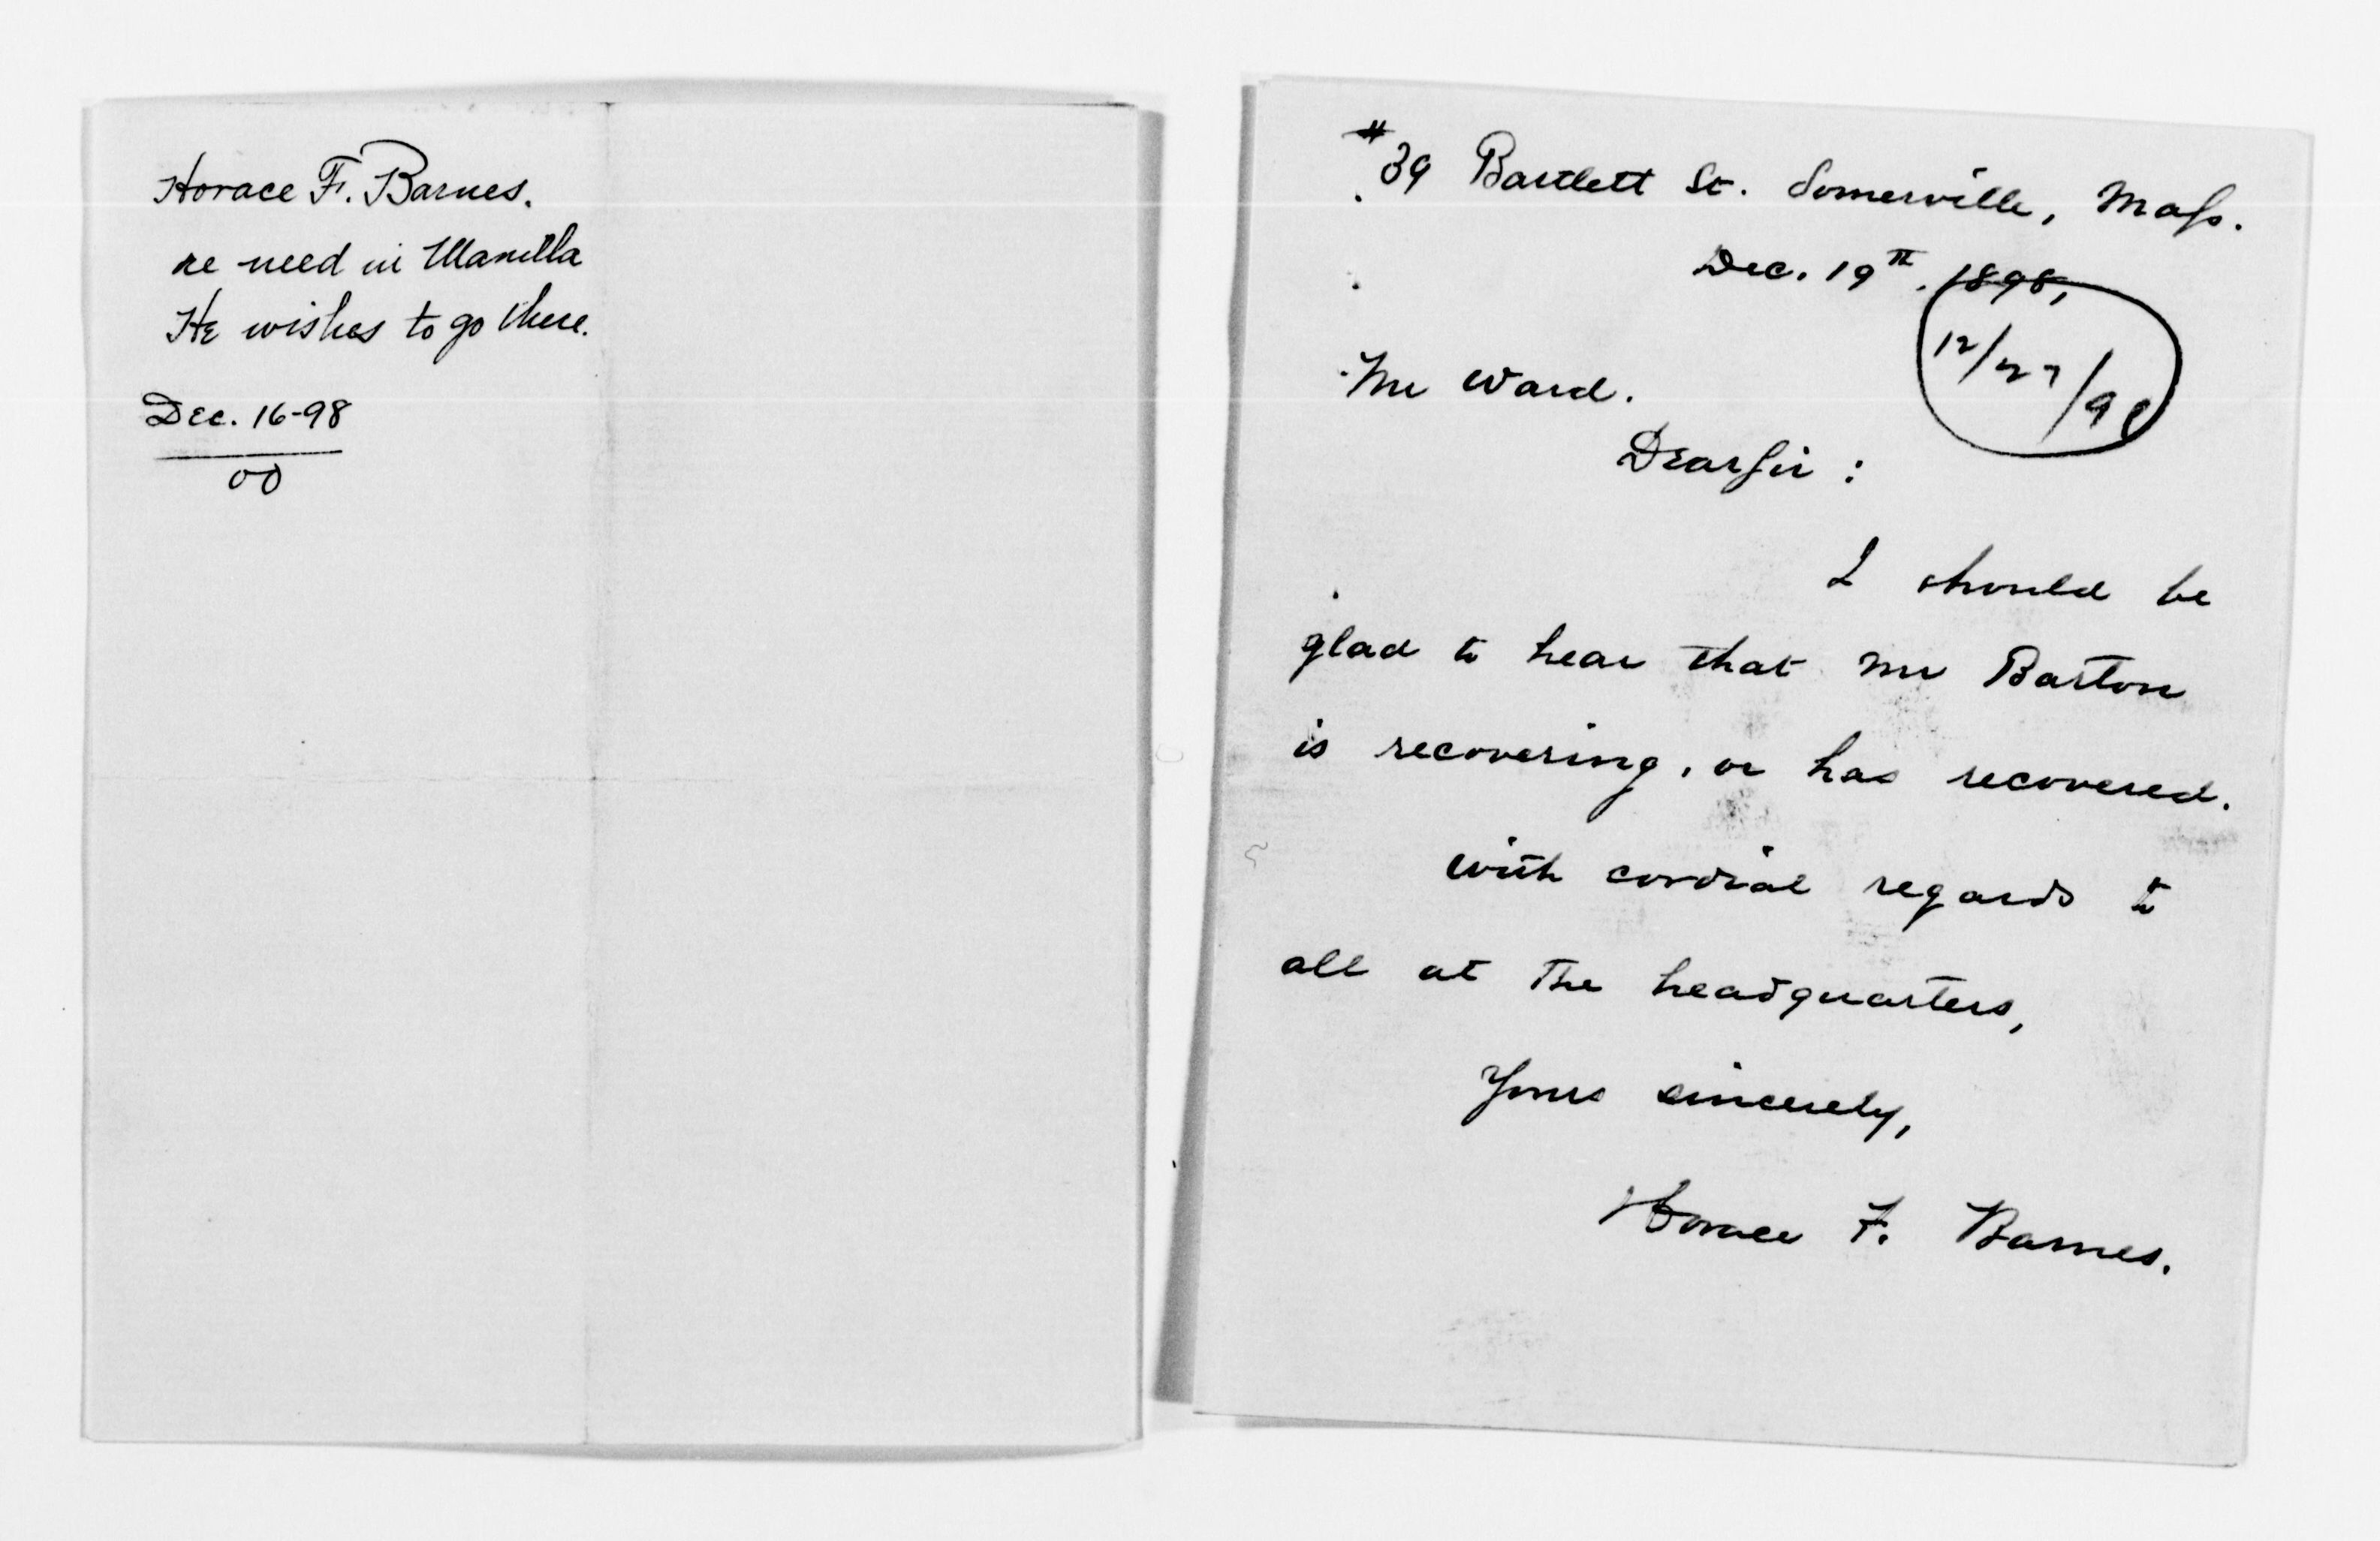 Horace F. Barnes.
re need in Manilla
He wishes to go there.
Dec. 16-98
#39 Bartlett St. Somerville, Mass.
Dec. 19th, 1898,
12/27/98
Mr Ward.
Dear Sir:
I should be
glad to hear that Mr Barton
is recovering, or has recovered.
With cordial regards to
all at the headquarters,
Yours sincerely,
Horace F. Barnes.